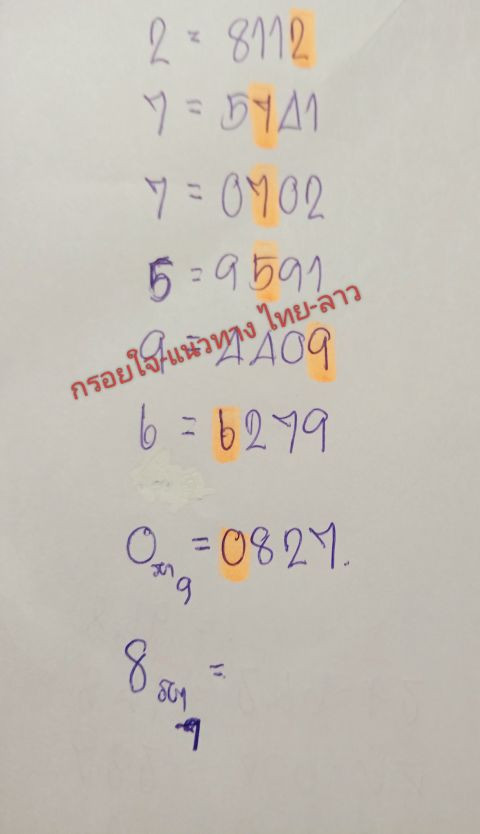 2 = 8112
7 = 5741
7 = 0702
5 = 9591
9 = 4409
กรอยใจ-แนวทาง ไทย-ลาว
6 = 6279
0 = 0827.
9
8 =
7